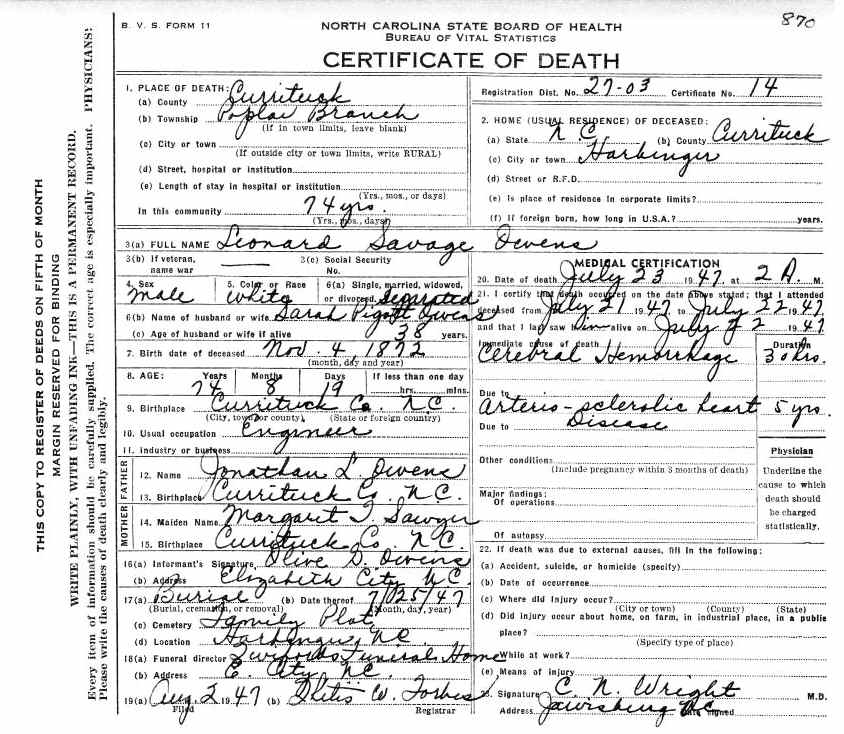 870
B. V. S. FORM 11
NORTH CAROLINA STATE BOARD OF HEALTH
BUREAU OF VITAL STATISTICS
CERTIFICATE OF DEATH
THIS COPY TO REGISTER OF DEEDS ON FIFTH OF MONTH
MARGIN RESERVED FOR BINDING
WRITE PLAINLY, WITH UNFADING INK—THIS IS A PERMANENT RECORD.
Every item of information should be carefully supplied. The correct age is especially important. PHYSICIANS:
Please write the causes of death clearly and legibly.
1. PLACE OF DEATH:
(a) County Currituck
(b) Township Poplar Branch
(If in town limits, leave blank)
(c) City or town
(If outside city or town limits, write RURAL)
(d) Street, hospital or institution
(e) Length of stay in hospital or institution
(Yrs., mos., or days)
In this community 74 yrs.
(Yrs., mos., days)
Registration Dist. No. 27-03 Certificate No. 14
2. HOME (USUAL RESIDENCE) OF DECEASED:
(a) State N C (b) County Currituck
(c) City or town Harbinger
(d) Street or R.F.D.
(e) Is place of residence in corporate limits?
(f) If foreign born, how long in U.S.A.? years.
3(a) FULL NAME Leonard Savage Owens
3(b) If veteran, name war
3(c) Social Security No.
4. Sex male
5. Color or Race White
6(a) Single, married, widowed, or divorced Separated
6(b) Name of husband or wife Sarah Pigott Owens
(c) Age of husband or wife if alive 38 years.
7. Birth date of deceased Nov. 4, 1872
(month, day and year)
8. AGE: Years Months Days If less than one day
74 8 19 hrs. mins.
9. Birthplace Currituck Co. N.C.
(City, town or county) (State or foreign country)
10. Usual occupation Engineer
11. Industry or business
FATHER
12. Name Jonathan L. Owens
13. Birthplace Currituck Co. N.C.
MOTHER
14. Maiden Name Margaret Sawyer
15. Birthplace Currituck Co. N.C.
16(a) Informant's Signature Olive D. Owens
(b) Address Elizabeth City N.C.
17(a) Burial (b) Date thereof 7/25/47
(Burial, cremation, or removal) (Month, day, year)
(c) Cemetery Family Plot
(d) Location Harbinger, N.C.
18(a) Funeral director Funeral Home
(b) Address E. City, N.C.
19(a) Aug 2 1947 (b) W. Forbes
Filed Registrar
MEDICAL CERTIFICATION
20. Date of death July 23 1947 at 2 A. M.
21. I certify that death occurred on the date above stated; that I attended
deceased from July 21 1947 to July 22 1947
and that I last saw him alive on July 22 1947
Immediate cause of death Duration
Cerebral Hemorrhage 30 hrs.
Due to
Arterio-sclerotic heart 5 yrs.
Due to Disease
Other conditions
(Include pregnancy within 3 months of death)
Major findings:
Of operations
Of autopsy
Physician
Underline the
cause to which
death should
be charged
statistically.
22. If death was due to external causes, fill in the following:
(a) Accident, suicide, or homicide (specify)
(b) Date of occurrence
(c) Where did injury occur?
(City or town) (County) (State)
(d) Did injury occur about home, on farm, in industrial place, in a public
place?
(Specify type of place)
While at work?
(e) Means of injury
23. Signature C. N. Wright M.D.
Address NC Date signed